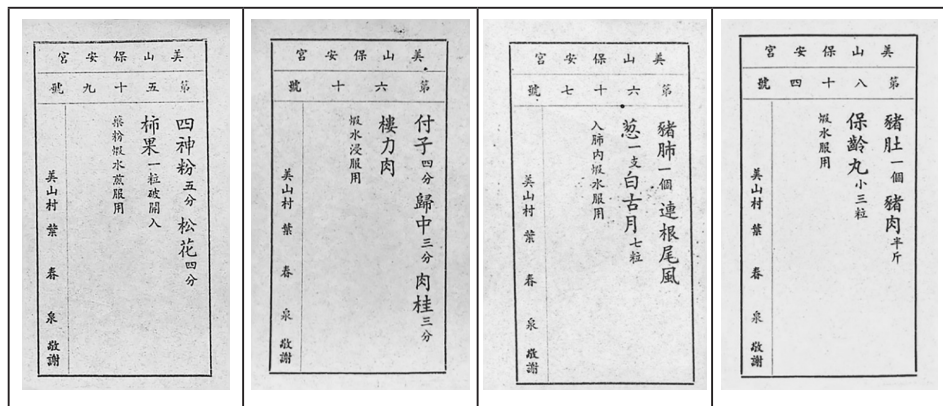 美山保安宮
第五十九號
四神粉五分 松花四分
柿果一粒破開入
藥粉煆水蒸服用
美山村 葉春泉 敬謝
美山保安宮
第六十號
付子四分 歸中三分 肉桂三分
樓力肉
煆水浸服用
美山村 葉春泉 敬謝
美山保安宮
第六十七號
豬肺一個 連根尾風
葱一支 白古月七粒
入肺內煆水服用
美山村 葉春泉 敬謝
美山保安宮
第八十四號
豬肚一個 豬肉半斤
保齡丸小三粒
煆水服用
美山村 葉春泉 敬謝